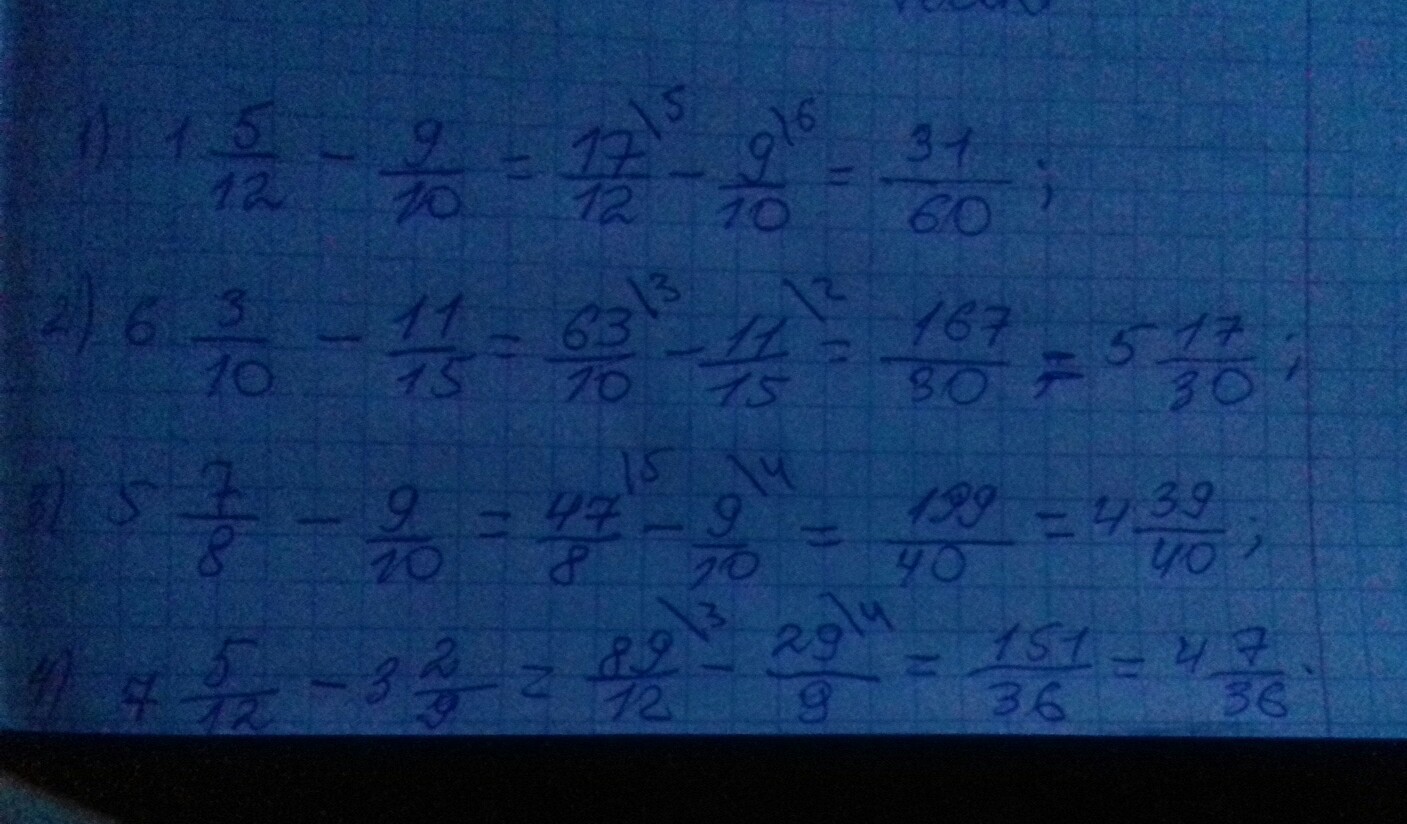 1) 1 5/12 - 9/10 = 17/12 \5 - 9/10 \6 = 31/60 ;
2) 6 3/10 - 11/15 = 63/10 \3 - 11/15 \2 = 167/30 = 5 17/30 ;
3) 5 7/8 - 9/10 = 47/8 \5 - 9/10 \4 = 199/40 = 4 39/40 ;
4) 7 5/12 - 3 2/9 = 89/12 \3 - 29/9 \4 = 151/36 = 4 7/36 .